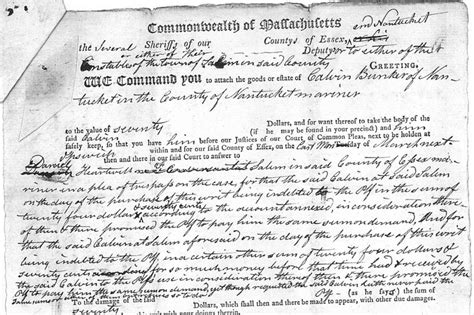 Commonwealth of Massachusetts
the Several Sheriffs of our Countys of Essex, and Nantucket
or either of Their Deputys or either of the
Constables of the town of Salem in said County GREETING,
WE Command you to attach the goods or estate of Calvin Bunker of Nan-
tucket in the County of Nantucket mariner
to the value of seventy Dollars, and for want thereof to take the body of the
said Calvin (if he may be found in your precinct) and him
safely keep, so that you have him before our Justices of our Court of Common Pleas, next to be holden at
Ipswich within and for our said County of Essex, on the last Monday of March next
then and there in our said Court to answer to
Daniel Salem in said County of Essex ma-
riner in a plea of trespass on the case, for that the said Calvin at said Salem
on the day of the purchase of this writ being indebted to the Plf in the sum of
twenty four dollars & seventy cents according to the account annexed, in consideration there
of then & there promised the Plf to pay him the same sum on demand, And for
that the said Calvin at Salem aforesaid on the day of the purchase of this writ
being indebted to the Plf, in a certain other sum of twenty four dollars &
seventy cents for so much money before that time had & received by
the said Calvin to the Plfs use in consideration thereof then & there promised the
Plf to pay him the same sum on demand, yet though requested the said Calvin hath never paid the
same
To the damage of the said Plf (as he says) the sum of
Dollars, which shall then and there be made to appear, with other due damages.